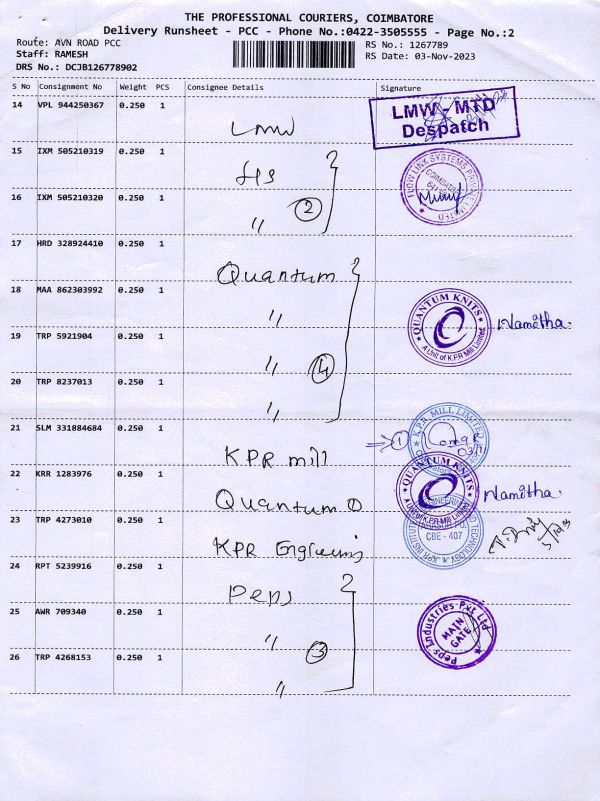 THE PROFESSIONAL COURIERS, COIMBATORE
Delivery Runsheet - PCC - Phone No.:0422-3505555 - Page No.:2
Route: AVN ROAD PCC
Staff: RAMESH
DRS No.: DCJB126778902
RS No.: 1267789
RS Date: 03-Nov-2023
S No Consignment No Weight PCS Consignee Details Signature
14 VPL 944250367 0.250 1 LMW
LMW - MTD
Despatch
15 IXM 505210319 0.250 1
FLOW LINK SYSTEMS PRIVATE LIMITED
16 IXM 505210320 0.250 1 " 2
17 HRD 328924410 0.250 1 Quantum
18 MAA 862303992 0.250 1 "
QUANTUM KNITS
A Unit of K.P.R Mill Limited
Namitha.
19 TRP 5921904 0.250 1 " 4
20 TRP 8237013 0.250 1 "
21 SLM 331884684 0.250 1 KPR mill
1
K.P.R. MILL LIMITED
22 KRR 1283976 0.250 1 Quantum
QUANTUM KNITS
A Unit of K.P.R Mill Limited
Namitha.
23 TRP 4273010 0.250 1 KPR
CBE - 407
24 RPT 5239916 0.250 1 Peps
25 AWR 709340 0.250 1 " 3
Peps Industries Pvt Ltd
MAIN
GATE
26 TRP 4268153 0.250 1 "